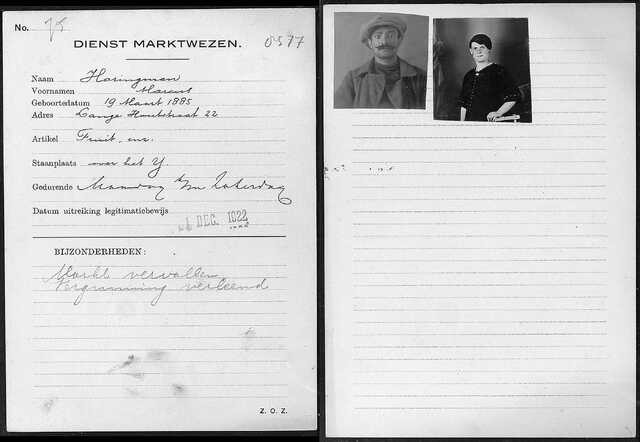 No. 75
DIENST MARKTWEZEN. 0577
Naam Haringman
Voornamen Marcus
Geboortedatum 19 Maart 1885
Adres Lange Houtstraat 22
Artikel Fruit, enz.
Staanplaats over het Y.
Gedurende Maandag t/m Zaterdag
Datum uitreiking legitimatiebewijs
DEC. 1922
BIJZONDERHEDEN:
Markt vervallen
Vergunning verleend
Z. O. Z.